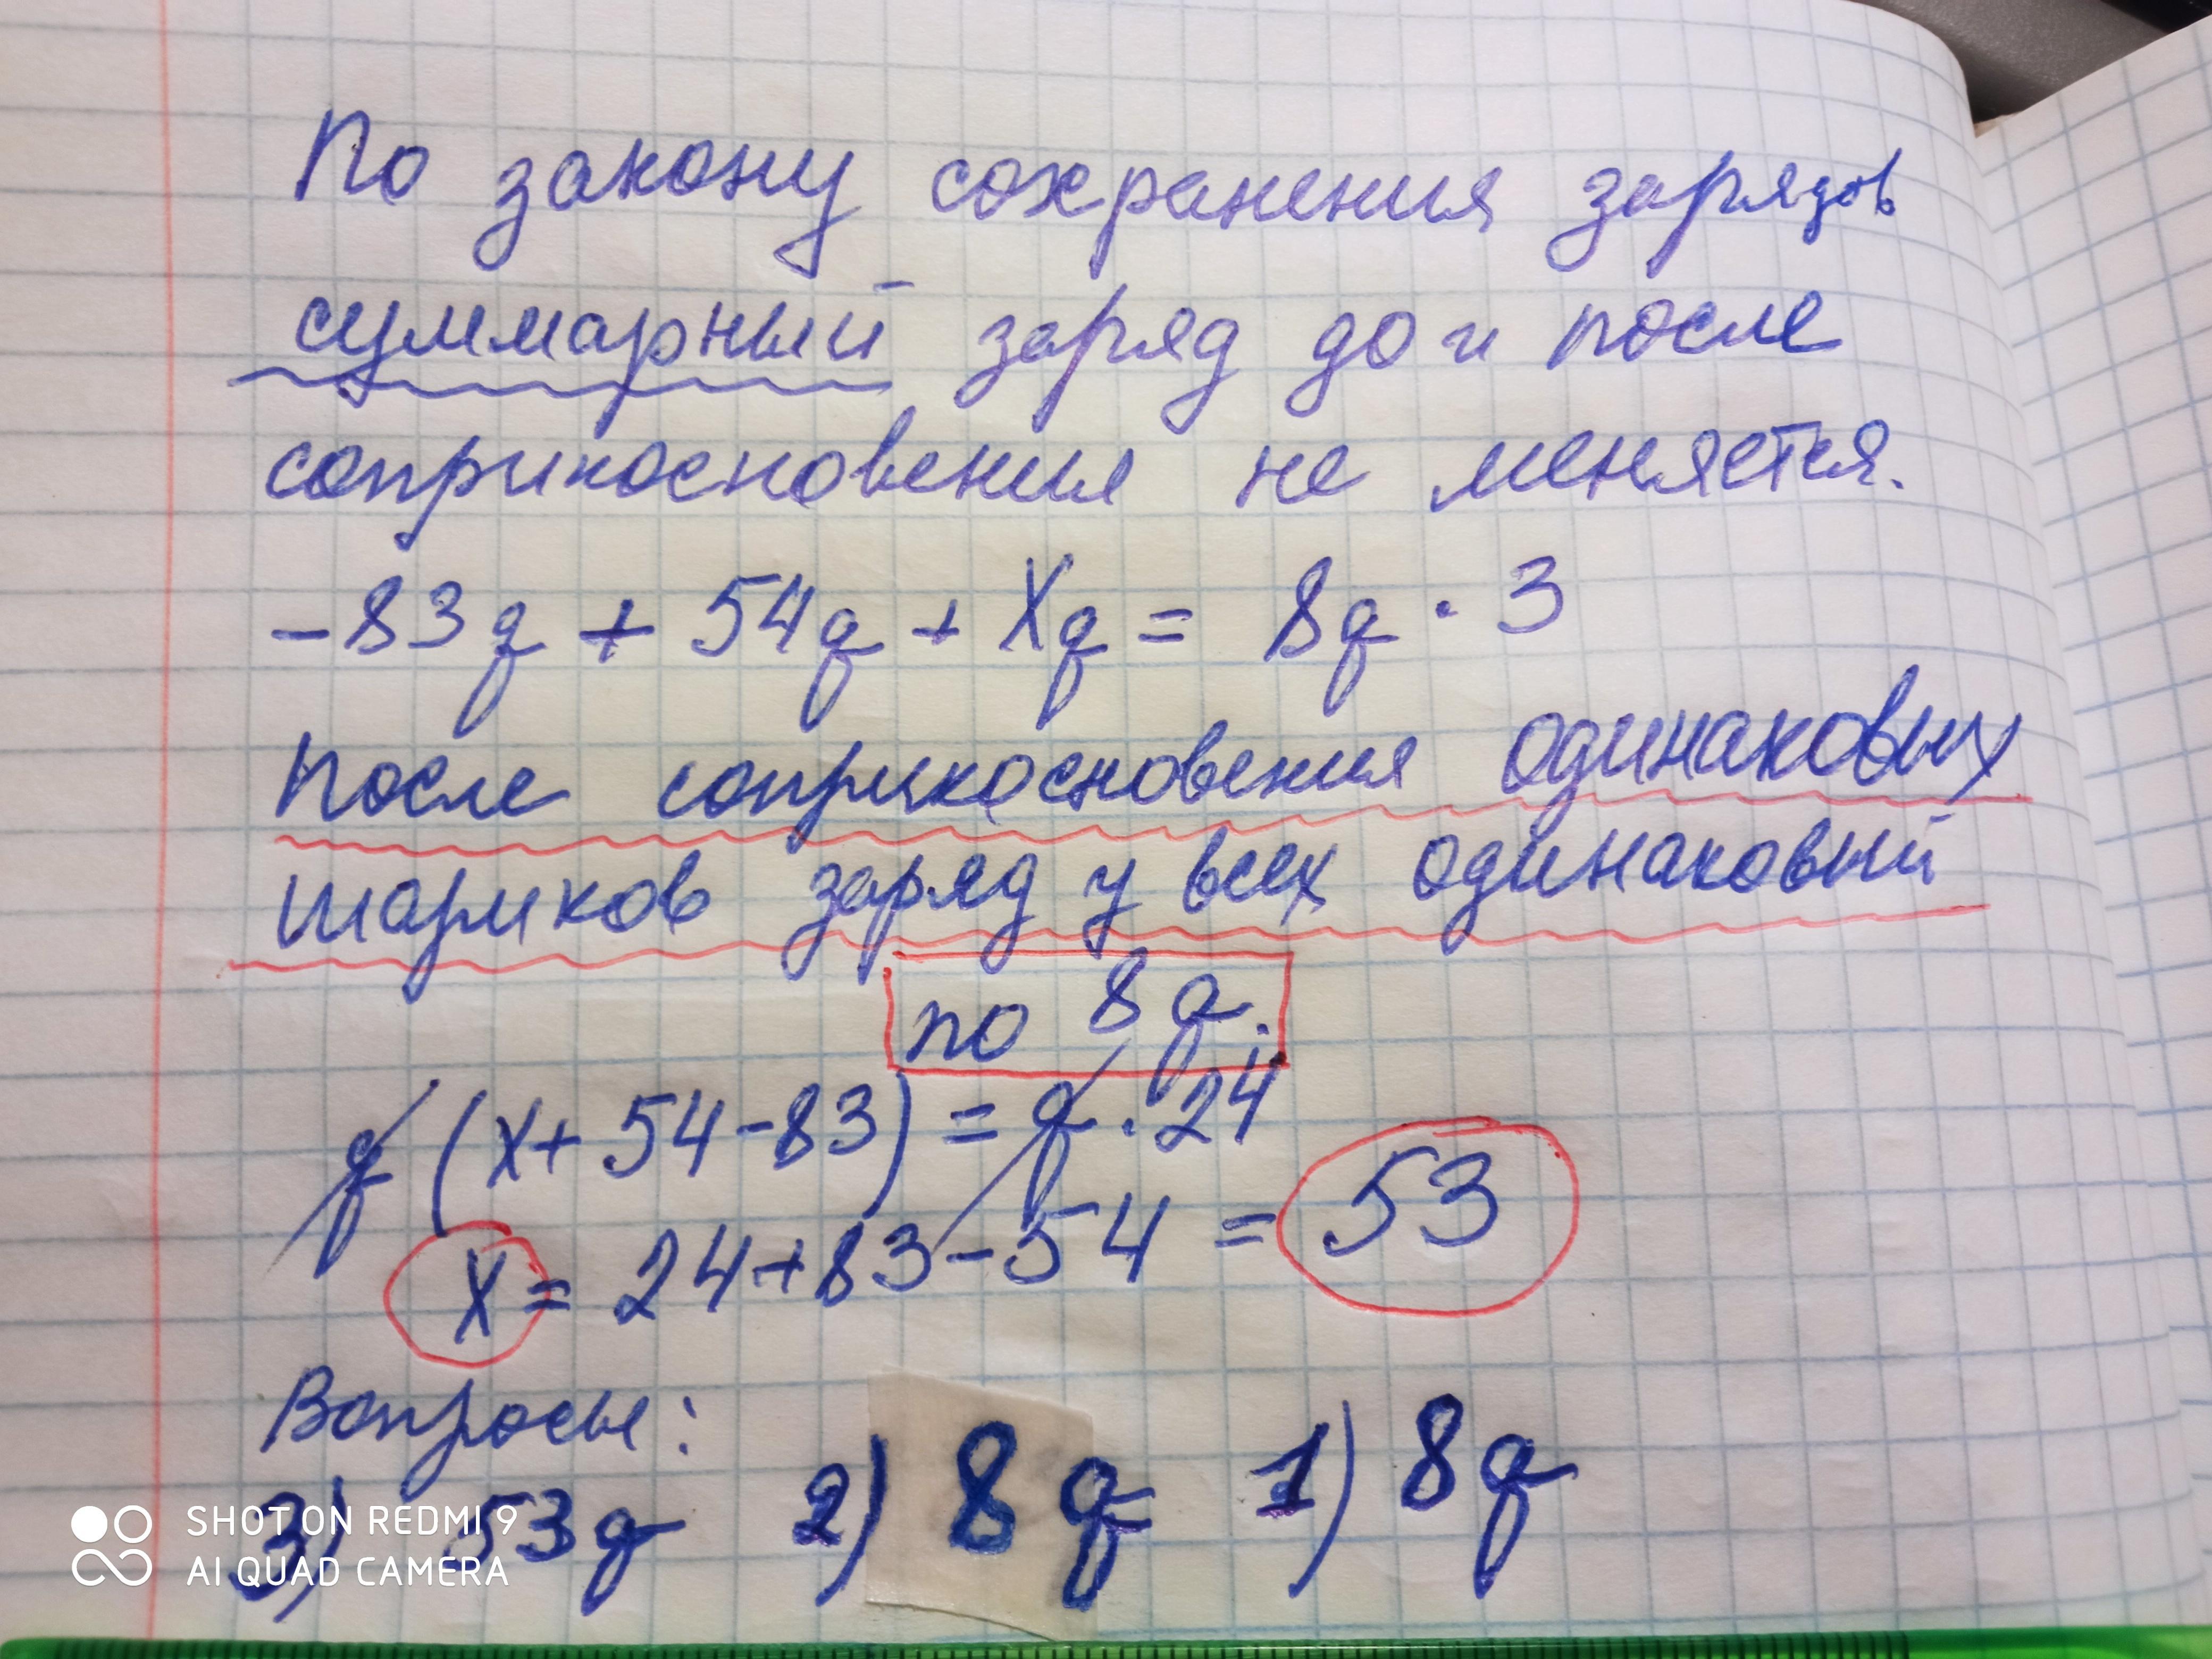 По закону сохранения зарядов
суммарный заряд до и после
соприкосновения не меняется.
-83q + 54q + Xq = 8q · 3
После соприкосновения одинаковых
шариков заряд у всех одинаковый
по 8q.
q (x+54-83) = q · 24
x = 24+83-54 = 53
Вопросы:
3) 53q 2) 8q 1) 8q
SHOT ON REDMI 9
AI QUAD CAMERA